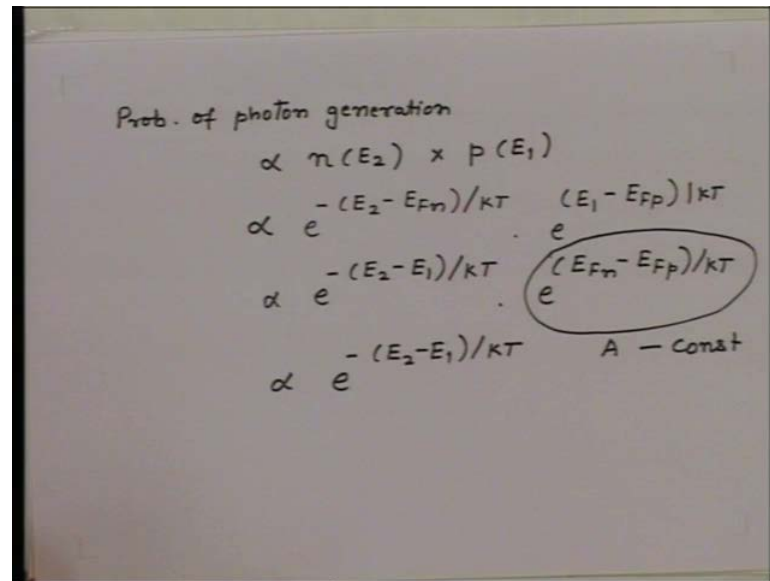 Prob. of photon generation
∝ n(E₂) × p(E₁)
∝ e^{-(E₂-E_{Fn})/KT} . e^{(E₁-E_{Fp})|KT}
∝ e^{-(E₂-E₁)/KT} . e^{(E_{Fn}-E_{Fp})/KT}
∝ e^{-(E₂-E₁)/KT} A - const